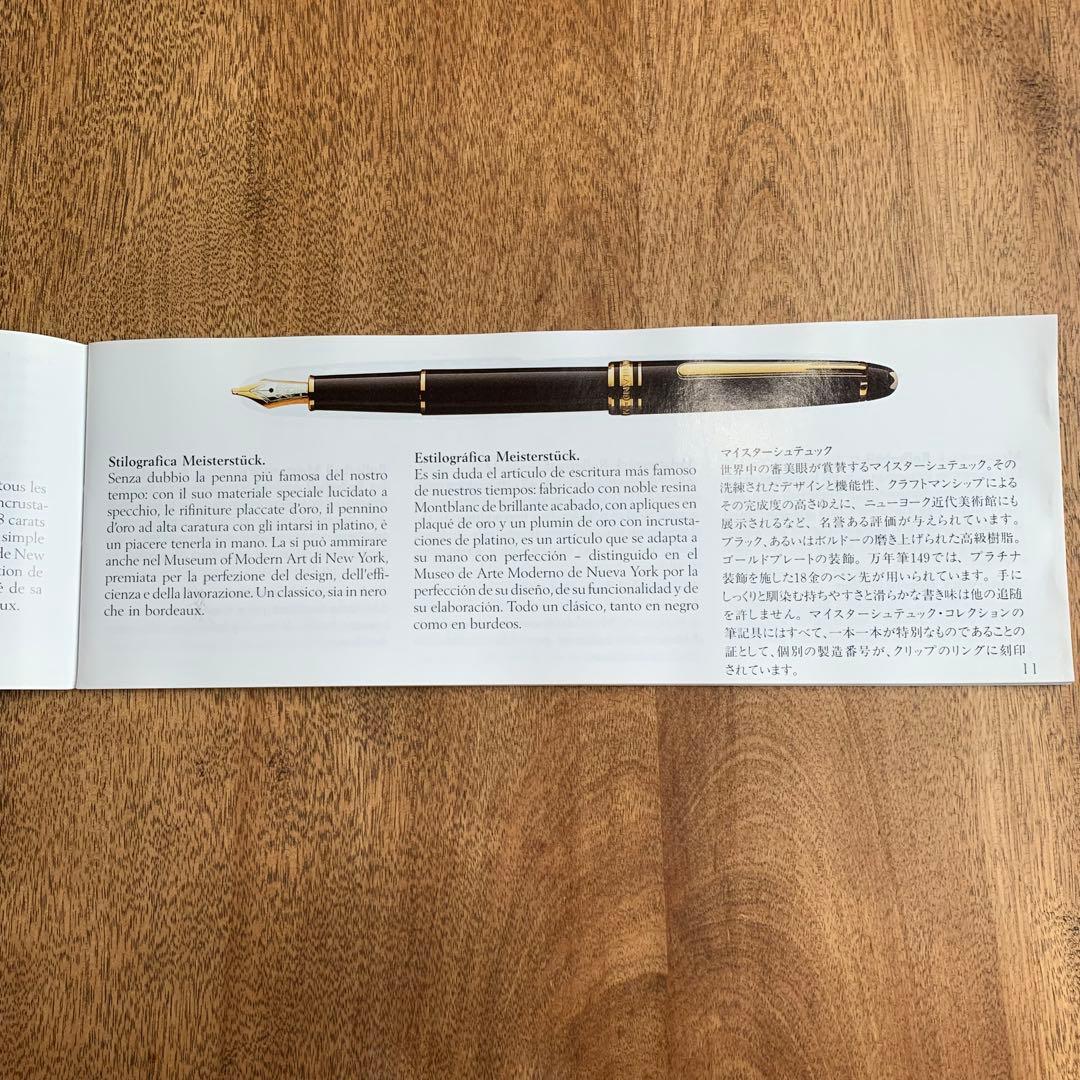 tous les
incrusta-
8 carats
simple
de New
tion de
é de sa
ux.
Stilografica Meisterstück.
Senza dubbio la penna più famosa del nostro
tempo: con il suo materiale speciale lucidato a
specchio, le rifiniture placcate d'oro, il pennino
d'oro ad alta caratura con gli intarsi in platino, è
un piacere tenerla in mano. La si può ammirare
anche nel Museum of Modern Art di New York,
premiata per la perfezione del design, dell'effi-
cienza e della lavorazione. Un classico, sia in nero
che in bordeaux.
Estilográfica Meisterstück.
Es sin duda el artículo de escritura más famoso
de nuestros tiempos: fabricado con noble resina
Montblanc de brillante acabado, con apliques en
plaqué de oro y un plumín de oro con incrusta-
ciones de platino, es un artículo que se adapta a
su mano con perfección – distinguido en el
Museo de Arte Moderno de Nueva York por la
perfección de su diseño, de su funcionalidad y de
su elaboración. Todo un clásico, tanto en negro
como en burdeos.
マイスターシュテュック
世界中の審美眼が賞賛するマイスターシュテュック。その
洗練されたデザインと機能性、クラフトマンシップによる
その完成度の高さゆえに、ニューヨーク近代美術館にも
展示されるなど、名誉ある評価が与えられています。
ブラック、あるいはボルドーの磨き上げられた高級樹脂。
ゴールドプレートの装飾。万年筆149では、プラチナ
装飾を施した18金のペン先が用いられています。手に
しっくりと馴染む持ちやすさと滑らかな書き味は他の追随
を許しません。マイスターシュテュック・コレクションの
筆記具にはすべて、一本一本が特別なものであることの
証として、個別の製造番号が、クリップのリングに刻印
されています。
11